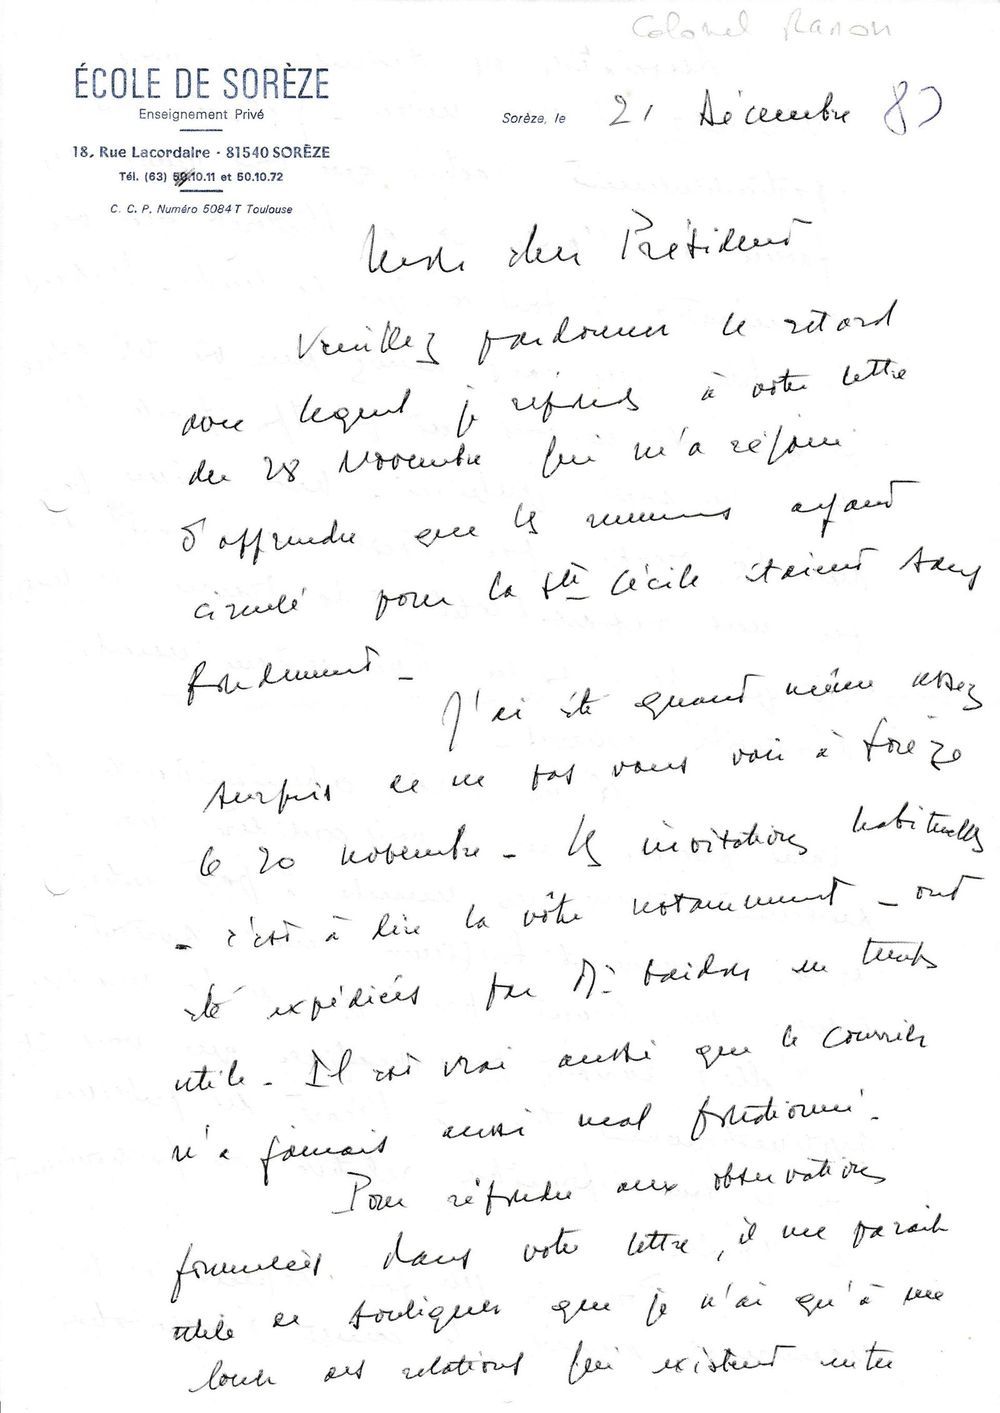 Colonel Ranon
ÉCOLE DE SORÈZE
Enseignement Privé
18, Rue Lacordaire - 81540 SORÈZE
Tél. (63) 50.10.11 et 50.10.72
C. C. P. Numéro 5084 T Toulouse
Sorèze, le 21 Décembre 83
Mon cher Président
Veuillez pardonner le retard
avec lequel je réponds à votre lettre
du 28 Novembre qui m'a réjoui
d'apprendre que les rumeurs ayant
circulé pour la Ste Cécile étaient sans
fondement -
J'ai été quand même assez
surpris de ne pas vous voir à Sorèze
le 20 novembre - Les invitations habituelles
- c'est à dire la vôtre notamment - ont
été expédiées par Mr en temps
utile - Il est vrai aussi que le courrier
n'a jamais aussi mal fonctionné -
Pour répondre aux observations
formulées dans votre lettre, il me parait
utile de souligner que je n'ai qu'à me
louer des relations qui existent entre